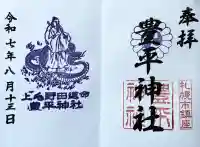 奉拝
豊平神社
札幌市鎮座
上毛野田道命
豊平神社
令和七年八月十三日